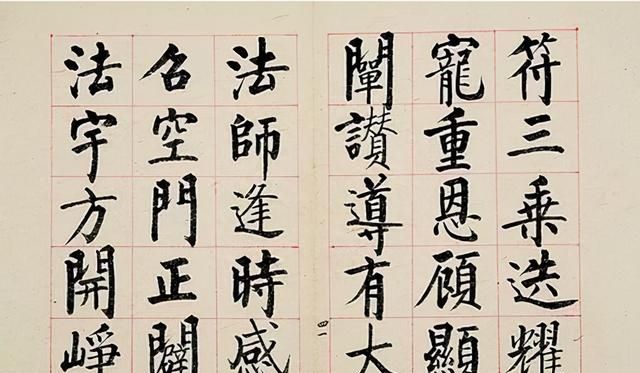 符三乗迭耀
寵重恩顧顯
闡讃導有大
四一
法師逢時感
召空門正闢
法宇方開崢